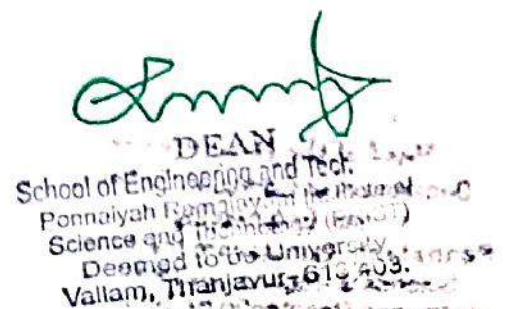 DEAN
School of Engineering and Tech.
Ponnaiyah Ramajayam Institute of
Science and Technology (PRIST)
Deemed to be University
Vallam, Thanjavur-613 403.